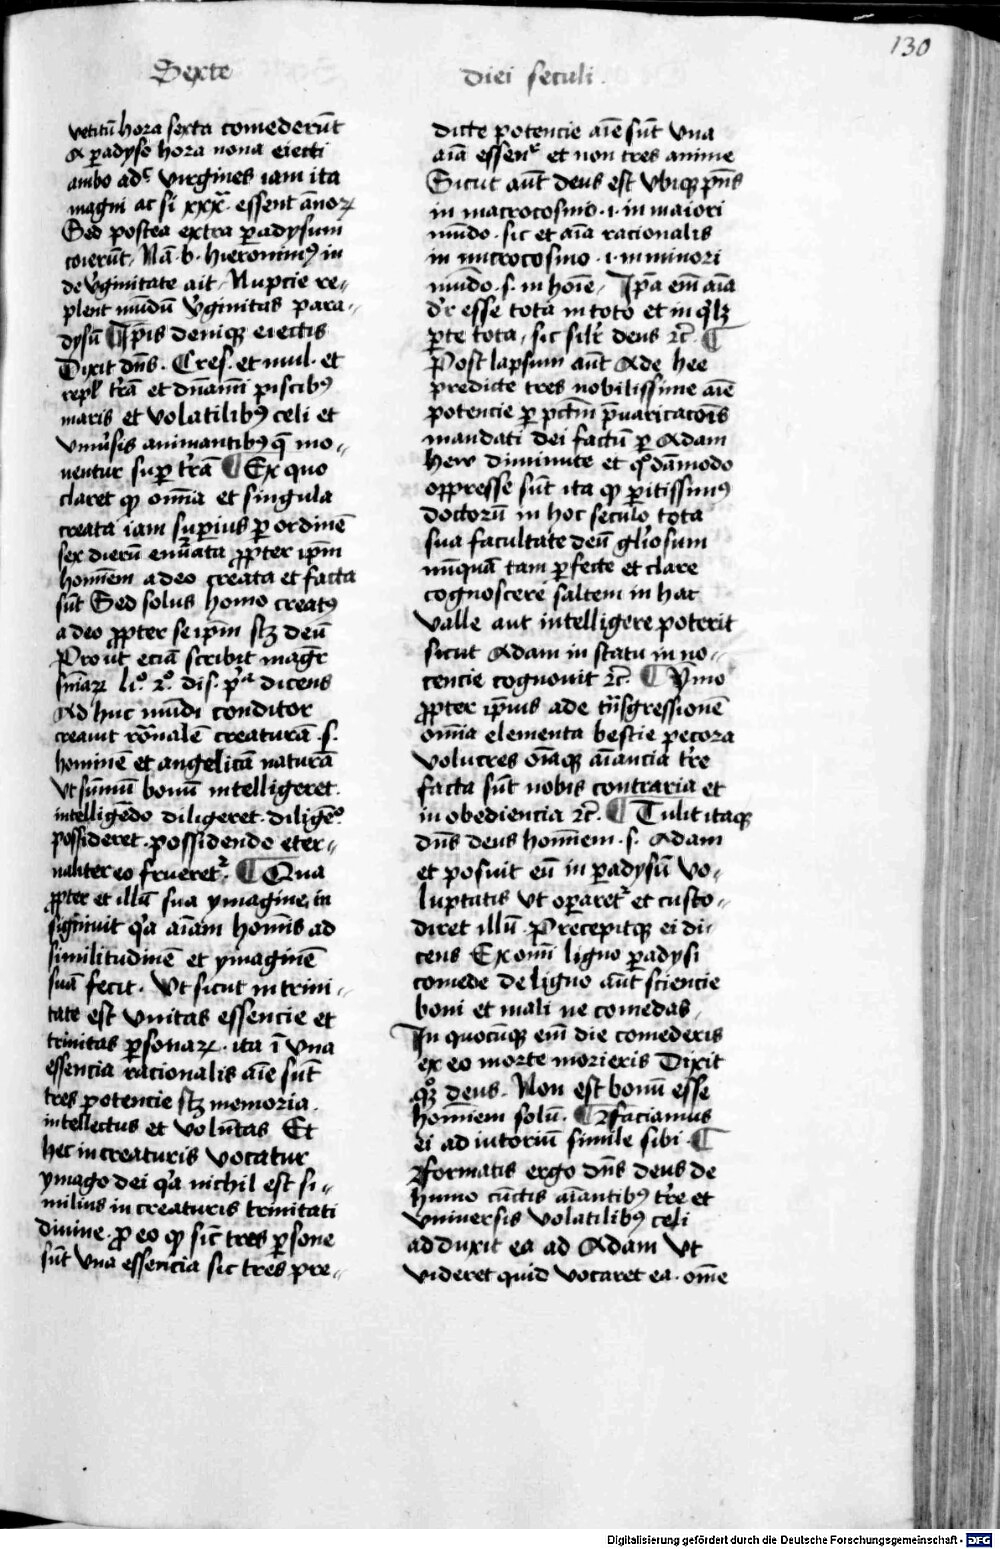 130
Sexte diei seculi.
vetitũ hora sexta comederũt
& ꝑadyso hora nona eiecti
ambo adᶜ virgines iam ita
magni ac si xxxᵃ. essent ãnoꝝ
Sed postea extra ꝑadysum
coierũt, Nã. b. hieronimꝰ in
de v̓ginitate ait, Nupcie re-
plent mũdũ v̓ginitas para-
dysũ ¶ Ip̃is deniqꝫ eiectis
Dixit dñs. Cres. et mul. et
repl̓ tr̃a et dñamĩ piscibꝰ
maris et volatilibꝰ celi et
vniũsis animantibꝰ q̃ mo-
uentur suꝑ tr̃a ¶ Ex quo
claret ꝙ om̃a et singula
creata iam suꝑius ꝑ ordinẽ
sex dierũ enũata ꝓpter ip̃m
hom̃em a deo creata et facta
sũt Sed solus homo creatꝰ
a deo ꝓpter seip̃m sꝫ deũ
Prout eciã scribit magr̃
sñiaꝝ li.º 2.º dis. p̓ᵃ dicens
Ad huc mũdi conditor
creauit rõnalẽ creaturã .s.
hominẽ et angelicã naturã
vt sũmũ bonũ intelligeret.
intelligẽdo diligeret. diligẽº.
possideret. possidendo eter-
naliter eo frueret᷑. ¶ Qua
ꝓpter et illũ sua ymagine in
signiuit q̓a aĩam homĩs ad
similitudinẽ et ymaginẽ
suã fecit. Vt sicut in trini-
tate est vnitas essencie et
trinitas ꝑsonaꝝ. ita ĩ vna
essencia racionalis aĩe sũt
tres potencie sꝫ memoria.
intellectus et volũtas Et
hec in creaturis vocatur
ymago dei q̓a nichil est si-
milius in creaturis trinitati
diuine. ꝓ eo ꝙ sic̃ tres ꝑsone
sũt vna essencia sic tres pre-
dicte potencie aĩe sũt vna
aĩa essen᷑ et non tres anime
Sicut aũt deus est vbiqꝫ p̃ns
in macrocosmo .i. in maiori
mũdo. sic et aĩa racionalis
in microcosmo .i. in minori
mũdo .s. in hoĩe, Ip̃a em̃ aĩa
d̓r esse tota in toto et in q̓lꝫ
ꝑte tota, sic sil̓r deus ⁊c̃. ¶
Post lapsum aũt Ade hee
predicte tres nobilissime aĩe
potencie ꝑ pctm̃ p̃uaricac̃oĩs
mandati dei factũ ꝑ Adam
hew diminute et q̊dãmodo
oppresse sũt ita ꝙ ꝑitissimꝰ
doctorũ in hoc seculo tota
sua facultate deũ gl̓iosum
nũquã tam ꝑfecte et clare
cognoscere saltem in hac
valle aut intelligere poterit
sicut Adam in statu in no-
cencie cognouit ⁊c̃. ¶ Ymo
ꝓpter ip̃ius ade trãsgressionẽ
om̃ia elementa bestie pecora
volucres oĩaqꝫ aĩancia tr̃e
facta sũt nobis contraria et
in obediencia ⁊c̃. ¶ Tulit itaqꝫ
dñs deus hom̃iem .s. Adam
et posuit eũ in ꝑadysũ vo-
luptatis vt oꝑaret᷑ et custo-
diret illũ. Precepitqꝫ ei di-
cens Ex om̃i ligno ꝑadysi
comede de ligno aũt sciencie
boni et mali ne comedas,
In quocũqꝫ em̃ die comederis
ex eo morte morieris Dixit
qꝫ deus. Non est bonũ esse
hom̃iem solũ. ¶ Faciamus
ei ad iutoriũ simile sibi. ¶
Formatis ergo dñs deus de
humo cũctis aĩantibꝰ tr̃e et
vniuersis volatilibꝰ celi
adduxit ea ad Adam vt
videret quid vocaret ea. om̃e
Digitalisierung gefördert durch die Deutsche Forschungsgemeinschaft - DFG